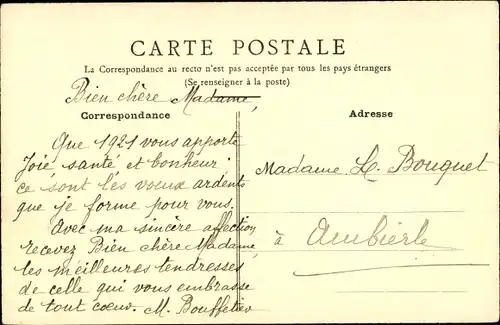 CARTE POSTALE
La Correspondance au recto n'est pas acceptée par tous les pays étrangers
(Se renseigner à la poste)
Bien chère Madame,
Correspondance
Adresse
Que 1921 vous apporte
Joie, santé et bonheur
ce sont les vœux ardents
que je forme pour vous.
Avec ma sincère affection
recevez Bien chère Madame
les meilleures tendresses
de celle qui vous embrasse
de tout coeur. M.
Madame L. Bouquet
à Ambierle